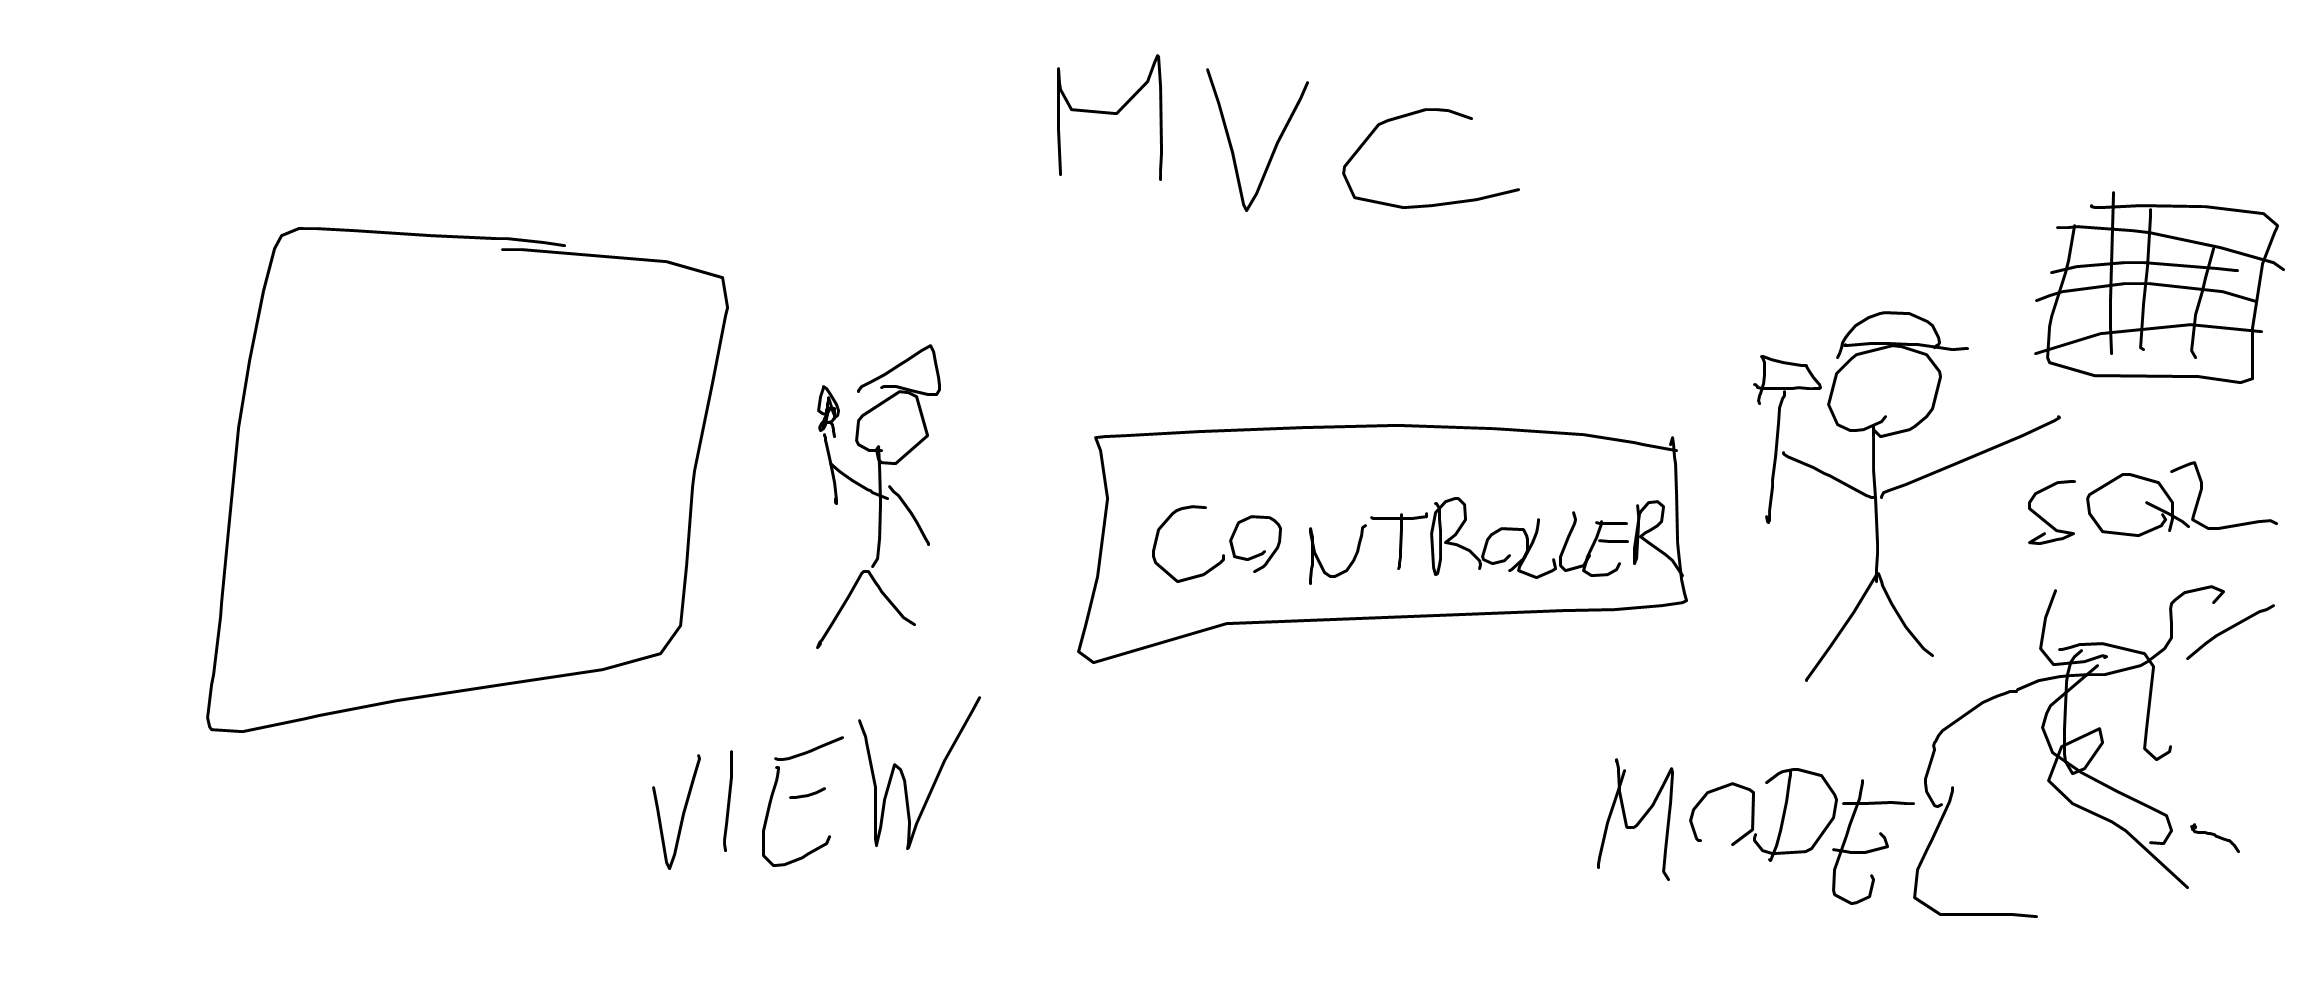 MVC
CONTROLLER
SQL
VIEW
MODEL